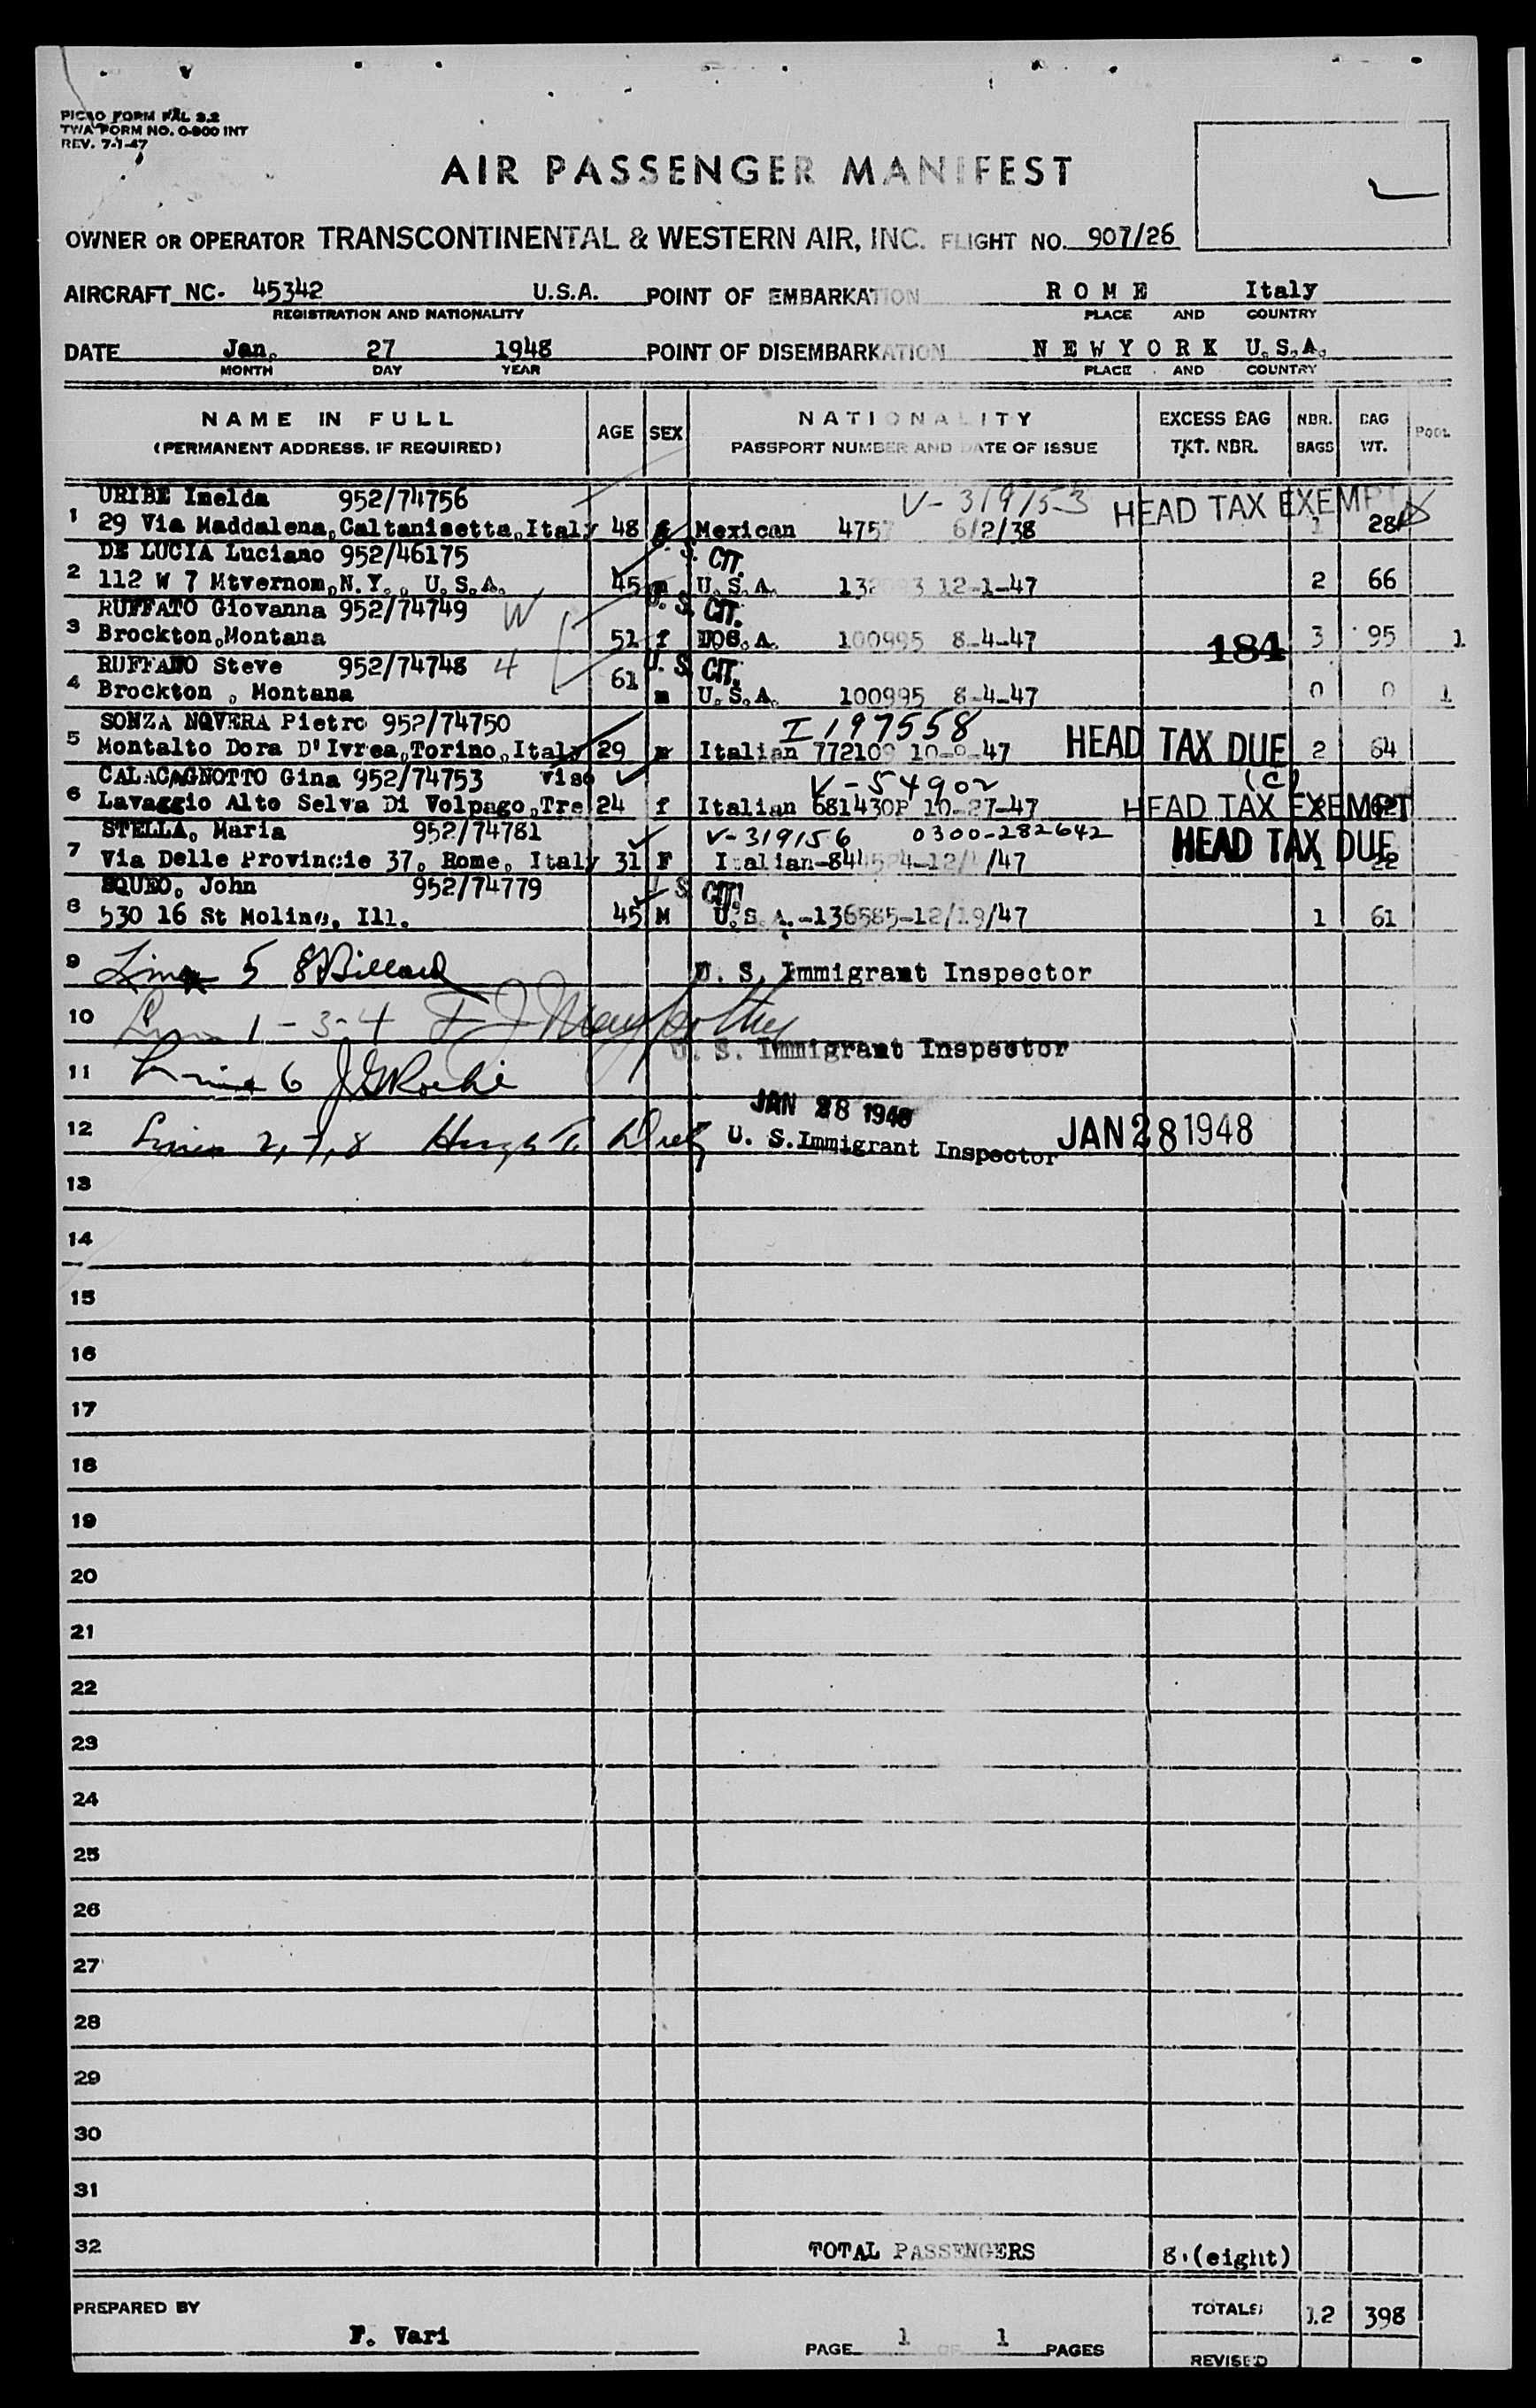 PICAO FORM FAL 3.2
TWA FORM NO. O-800 INT
REV. 7-1-47
AIR PASSENGER MANIFEST
OWNER OR OPERATOR TRANSCONTINENTAL & WESTERN AIR, INC. FLIGHT NO. 907/26
AIRCRAFT NC- 45342 U.S.A. POINT OF EMBARKATION ROME Italy
REGISTRATION AND NATIONALITY PLACE AND COUNTRY
DATE Jan. 27 1948 POINT OF DISEMBARKATION NEW YORK U.S.A.
MONTH DAY YEAR PLACE AND COUNTRY
NAME IN FULL AGE SEX NATIONALITY EXCESS BAG NBR. BAG POOL
(PERMANENT ADDRESS. IF REQUIRED) PASSPORT NUMBER AND DATE OF ISSUE TKT. NBR. BAGS WT.
URIBE Imelda 952/74756 V-319153 HEAD TAX EXEMPT
1 29 Via Maddalena, Caltanisetta, Italy 48 f Mexican 4757 6/2/38 1 28
DE LUCIA Luciano 952/46175 U.S. CIT.
2 112 W 7 Mtvernom, N.Y., U.S.A. 45 m U.S.A. 12-1-47 2 66
RUFFATO Giovanna 952/74749 W U.S. CIT.
3 Brockton, Montana 51 f U.S.A. 100995 8-4-47 184 3 95 1
RUFFATO Steve 952/74748 4 U.S. CIT.
4 Brockton, Montana 61 m U.S.A. 100995 8-4-47 0 0 1
SONZA NOVERA Pietro 952/74750 I 197558
5 Montalto Dora D'Ivrea, Torino, Italy 29 m Italian 772109 HEAD TAX DUE 2 64
CALACAGNOTTO Gina 952/74753 viso V-54902 (C)
6 Lavaggio Alto Selva Di Volpago, Tre 24 f Italian 681430P 10-27-47 HEAD TAX EXEMPT 2 62
STELLA, Maria 952/74781 V-319156 0300-282642 HEAD TAX DUE
7 Via Delle Provincie 37, Rome, Italy 31 F Italian 1 22
SQUEO, John 952/74779 U.S. CIT.
8 530 16 St Moline, Ill. 45 M U.S.A.-136585-12/19/47 1 61
9 Line 5 Billard U. S. Immigrant Inspector
10 Lines 1-3-4
U. S. Immigrant Inspector
11 Line 6 J G Roche
JAN 28 1948
12 Lines 2, 7, 8 Hugh T. U. S. Immigrant Inspector JAN 28 1948
13
14
15
16
17
18
19
20
21
22
23
24
25
26
27
28
29
30
31
32 TOTAL PASSENGERS 8.(eight)
PREPARED BY TOTALS 12 398
F. Vari PAGE 1 OF 1 PAGES
REVISED